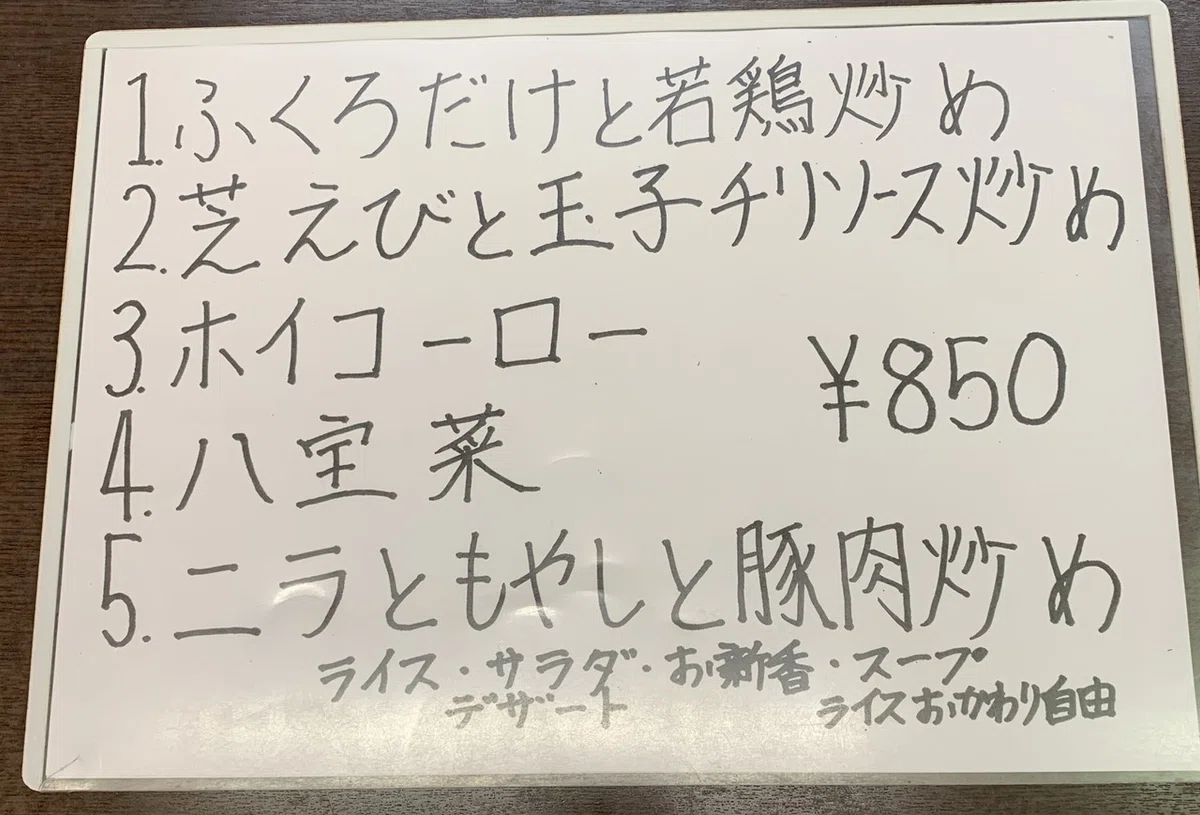 1.ふくろだけと若鶏炒め
2.芝えびと玉子チリソース炒め
3.ホイコーロー
¥850
4.八宝菜
5.ニラともやしと豚肉炒め
ライス・サラダ・お新香・スープ
デザート ライスおかわり自由